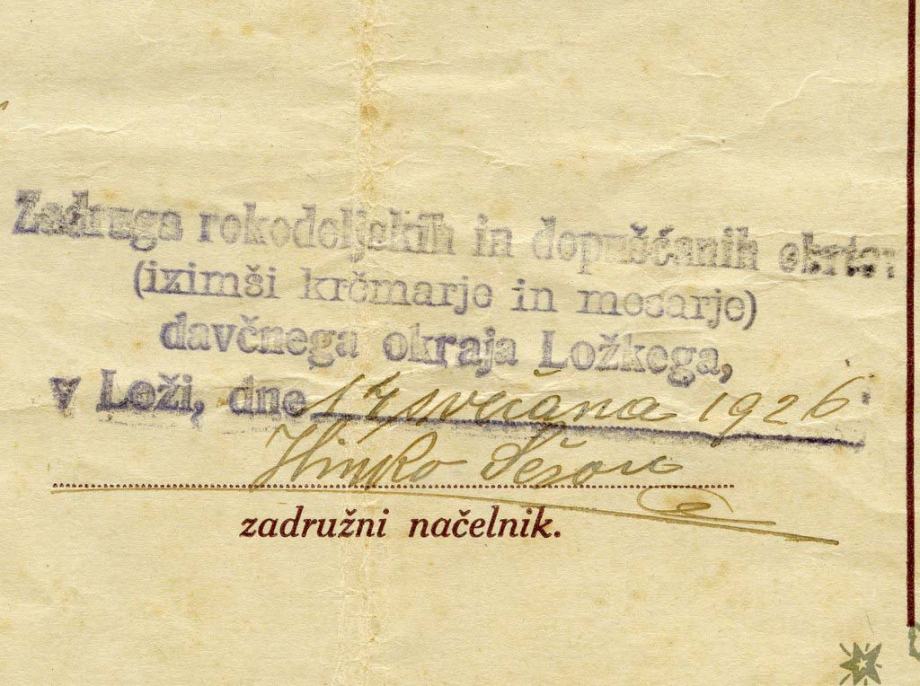 Zadruga rokodeljskih in dopuščanih obrtov
(izimši krčmarje in mesarje)
davčnega okraja Ložkega,
v Loži, dne 17 svečana 1926
Hinko Šešon
zadružni načelnik.